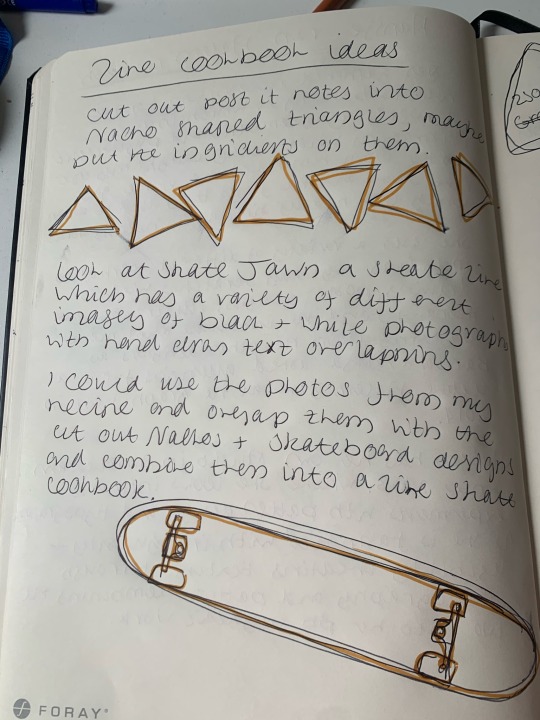 Zine cookbook ideas
cut out post it notes into
Nacho shaped triangles, maybe
put the ingridients on them.
Look at skate Jawn a skate zine
which has a variety of different
imagey of black + white photograph
with hand drawn text overlapping.
I could use the photos from my
recipe and overlap them with the
cut out Nachos + skateboard designs
and combine them into a zine skate
cookbook.
FORAY